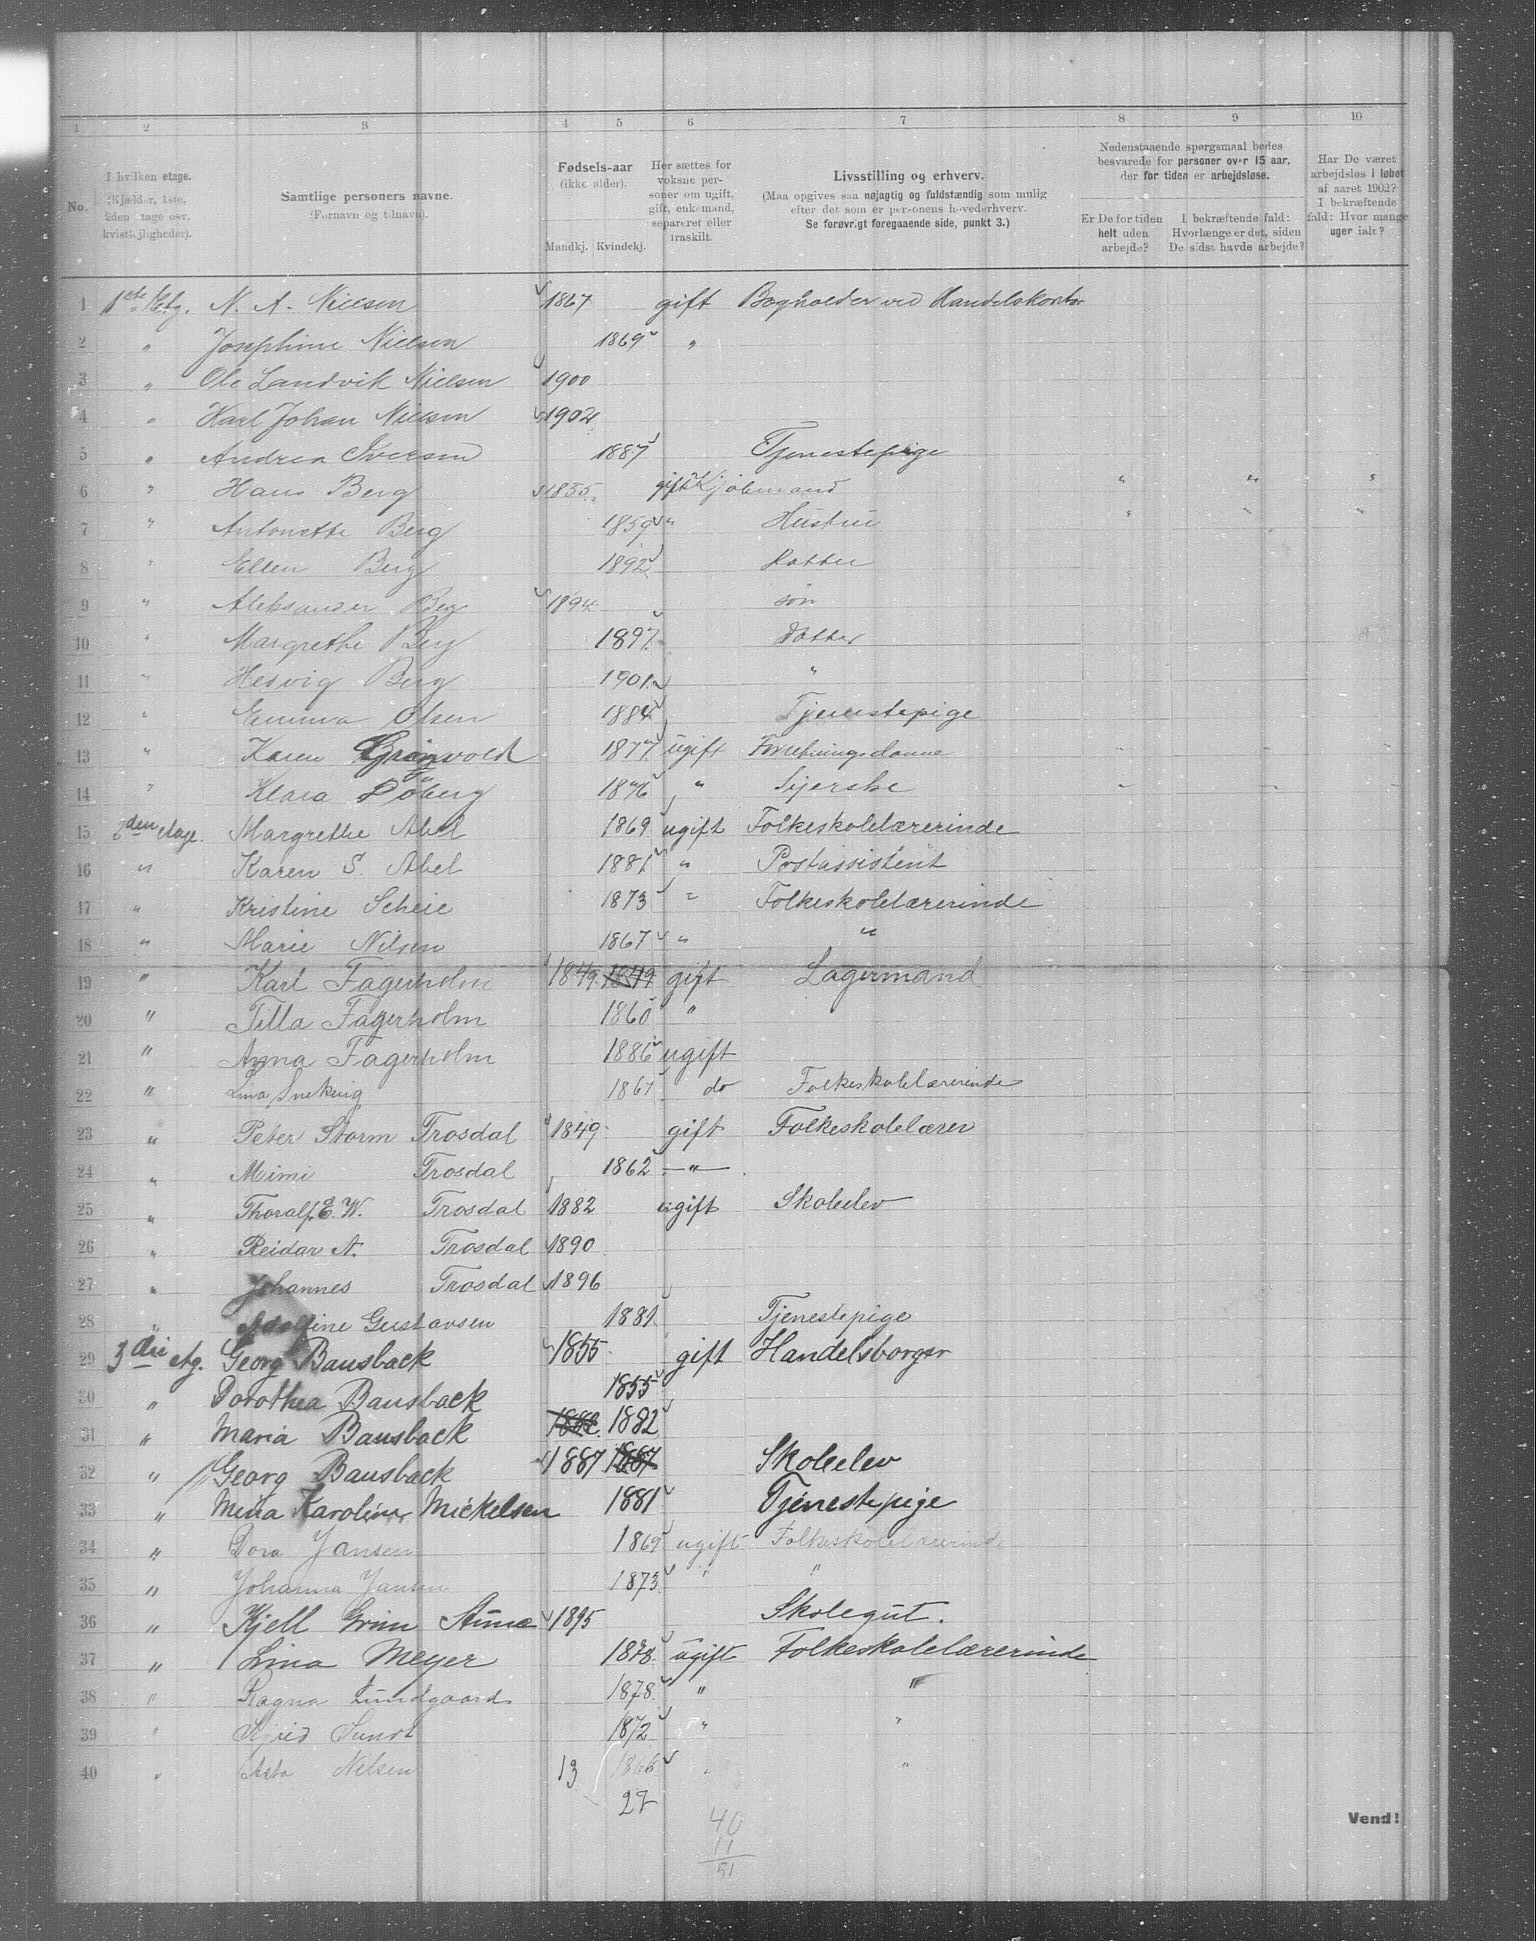 1 2 3 4 5 6 7 8 9 10
No.
I hvilken etage.
(Kjælder, 1ste, 2den etage osv. kvistlejligheder).
Samtlige personers navne.
(Fornavn og tilnavn).
Fødsels-aar
(ikke alder).
Mandkj. Kvindekj.
Her sættes for voksne personer om ugift, gift, enkemand, separeret eller fraskilt.
Livsstilling og erhverv.
(Maa opgives saa nøjagtig og fuldstændig som mulig efter det som er personens hovederhverv.
Se forøvrigt foregaaende side, punkt 3.)
Nedenstaaende spørgsmaal bedes besvarede for personer over 15 aar, der for tiden er arbejdsløse.
Er De for tiden helt uden arbejde?
I bekræftende fald: Hvorlænge er det, siden De sidst havde arbejde?
Har De været arbejdsløs i løbet af aaret 1902? I bekræftende fald: Hvor mange uger ialt?
1 1ste Etg. N. A. Nielsen 1867 gift Bogholder ved Handelskontor
2 " Josephine Nielsen 1869 "
3 " Ole Landvik Nielsen 1900
4 " Karl Johan Nielsen 1902
5 " Andrea Iversen 1887 Tjenestepige
6 " Hans Berg 1855 gift " " "
7 " Antonette Berg 1859 " Hustru " " "
8 " Ellen Berg 1892 Datter
9 " Aleksander Berg 1894 søn
10 " Margrethe Berg 1897 datter
11 " Hedvig Berg 1901 "
12 " Emma Olsen 1884 Tjenestepige
13 " Karen Grønvold 1877 ugift Forretningsdame " " "
14 " Klara Söberg 1876 " Syerske " " "
15 2den etage. Margrethe Abel 1869 ugift Folkeskolelærerinde
16 " Karen S. Abel 1881 " Postassistent
17 " Kristine Scheie 1873 " Folkeskolelærerinde
18 " Marie Nilsen 1867 " "
19 " Karl Fagerholm 1849 1849 gift Lagermand
20 " Tilla Fagerholm 1860 "
21 " Anna Fagerholm 1886 ugift
22 " Lina 1867 do Folkeskolelærerinde
23 " Peter Storm Trosdal 1849 gift Folkeskolelærer
24 " Mimi Trosdal 1862 — " —
25 " Thoralf E. W. Trosdal 1882 ugift Skoleelev
26 " Reidar A. Trosdal 1890
27 " Johannes Trosdal 1896
28 " Adolfine Gustavsen 1881 Tjenestepige
29 3die etg. Georg Bausback 1855 gift Handelsborger
30 " Dorothea Bausback 1855
31 " Maria Bausback 1882 1882
32 " Georg Bausback 1887 1887 Skoleelev
33 " Mina Karoline Mickelsen 1881 Tjenestepige
34 " Dora Jansen 1869 ugift Folkeskolelærerinde
35 " Johanna Jansen 1873 " "
36 " Kjell Grim Aune 1895 Skolegut.
37 " Lina Meyer 1878 ugift Folkeskolelærerinde
38 " Ragna Lundgaard 1878 " "
39 " Sigrid Sundt 1872 " "
40 " Asta Nilsen 1866 " "
13
27
40
11
51
Vend!